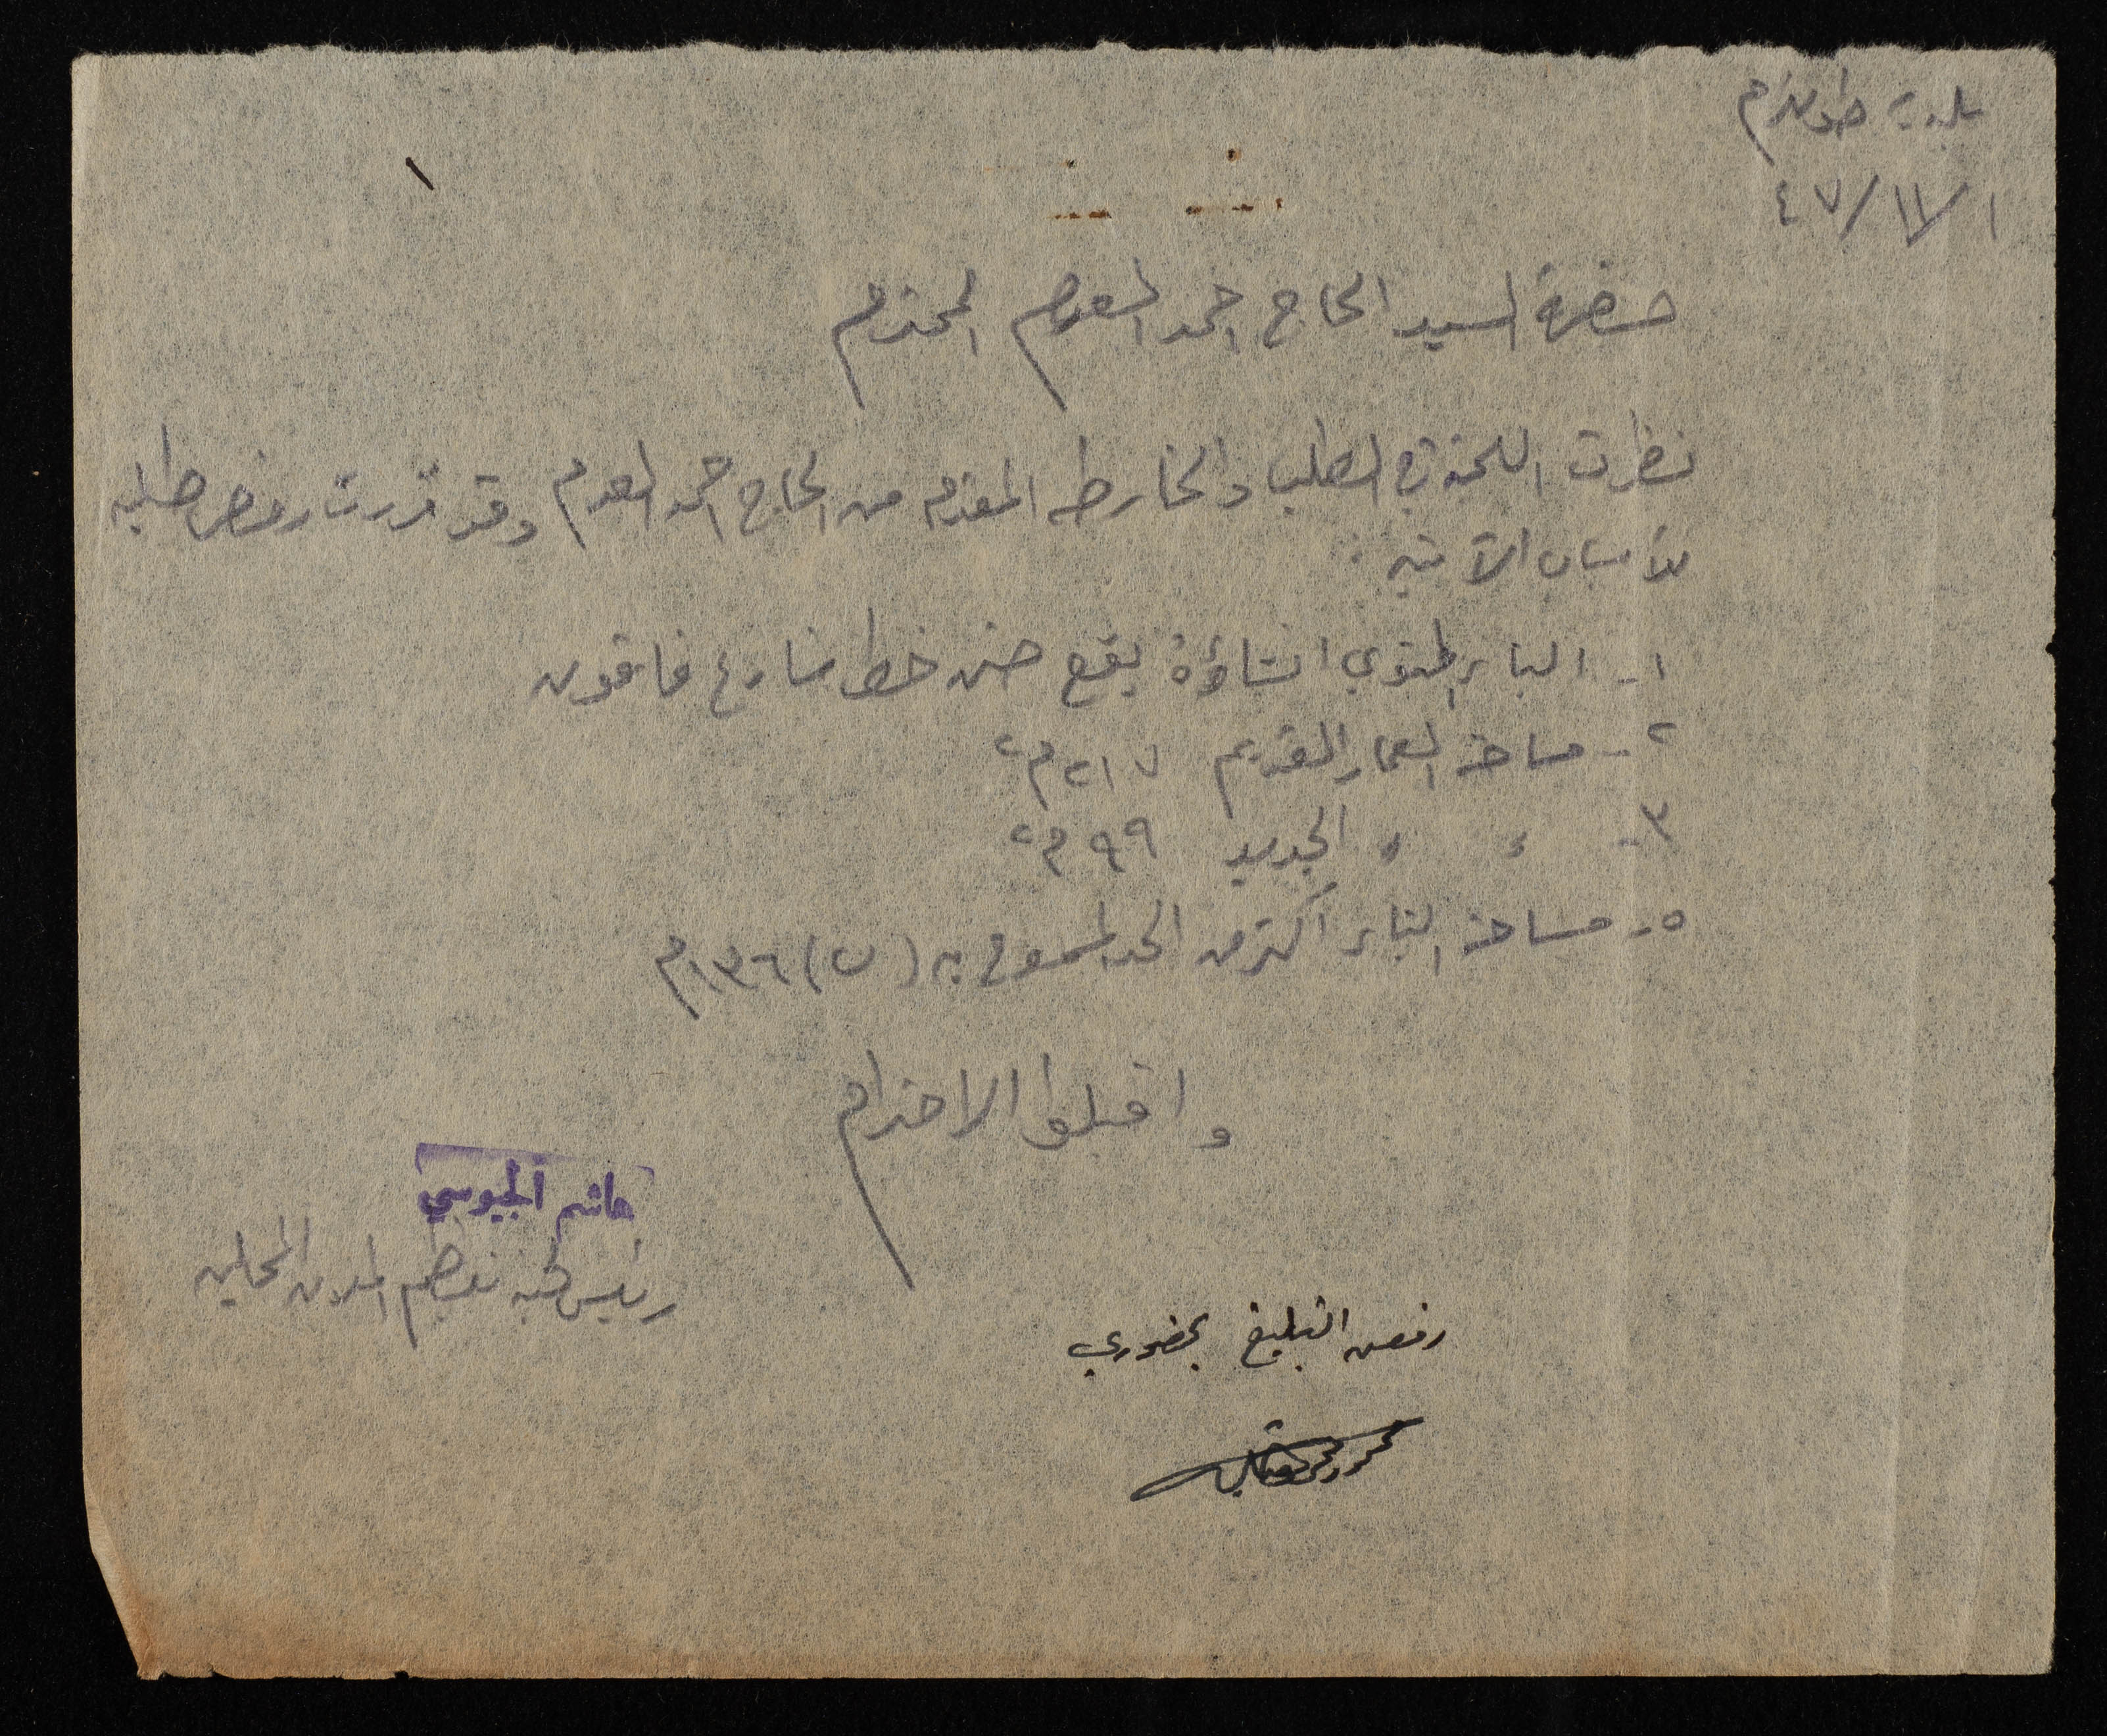 بلدية طولكرم
١/١١/٤٧
حضرة السيد الحاج احمد المحترم
نظرت اللجنة في الطلب والخارطه المقدمه من الحاج احمد وقد قررت رفض طلبه
للأسباب الآتيه :
١- البناء المنوي انشاؤه يقع ضمن خط شارع قاقون
٢- مساحة العمار القديم ٢١٧م٢
٣- " " الجديد ٩٩م٢
٥- مساحة البناء اكثر من الحد المسموح به (ب) ١٣٦م
واقبلوا الاحترام
هاشم الجيوسي
رئيس لجنة تنظيم المدن المحليه
رفض التبليغ بحضوري